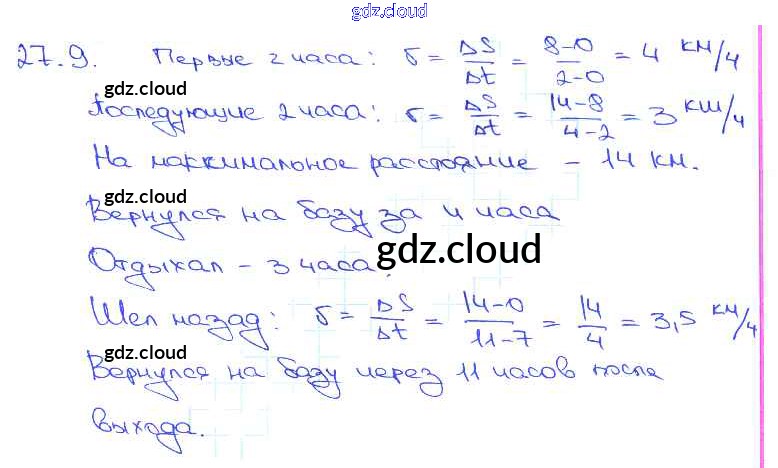 gdz.cloud
27.9. Первые 2 часа: v = ΔS/Δt = 8-0/2-0 = 4 км/ч
gdz.cloud
Последующие 2 часа: v = ΔS/Δt = 14-8/4-2 = 3 км/ч
На маркимальное расстояние – 14 км.
gdz.cloud
Вернулся на базу за 4 часа
gdz.cloud
Отдыхал – 3 часа.
Шел назад: v = ΔS/Δt = 14-0/11-7 = 14/4 = 3,5 км/ч
gdz.cloud
Вернулся на базу через 11 часов после
выхода.